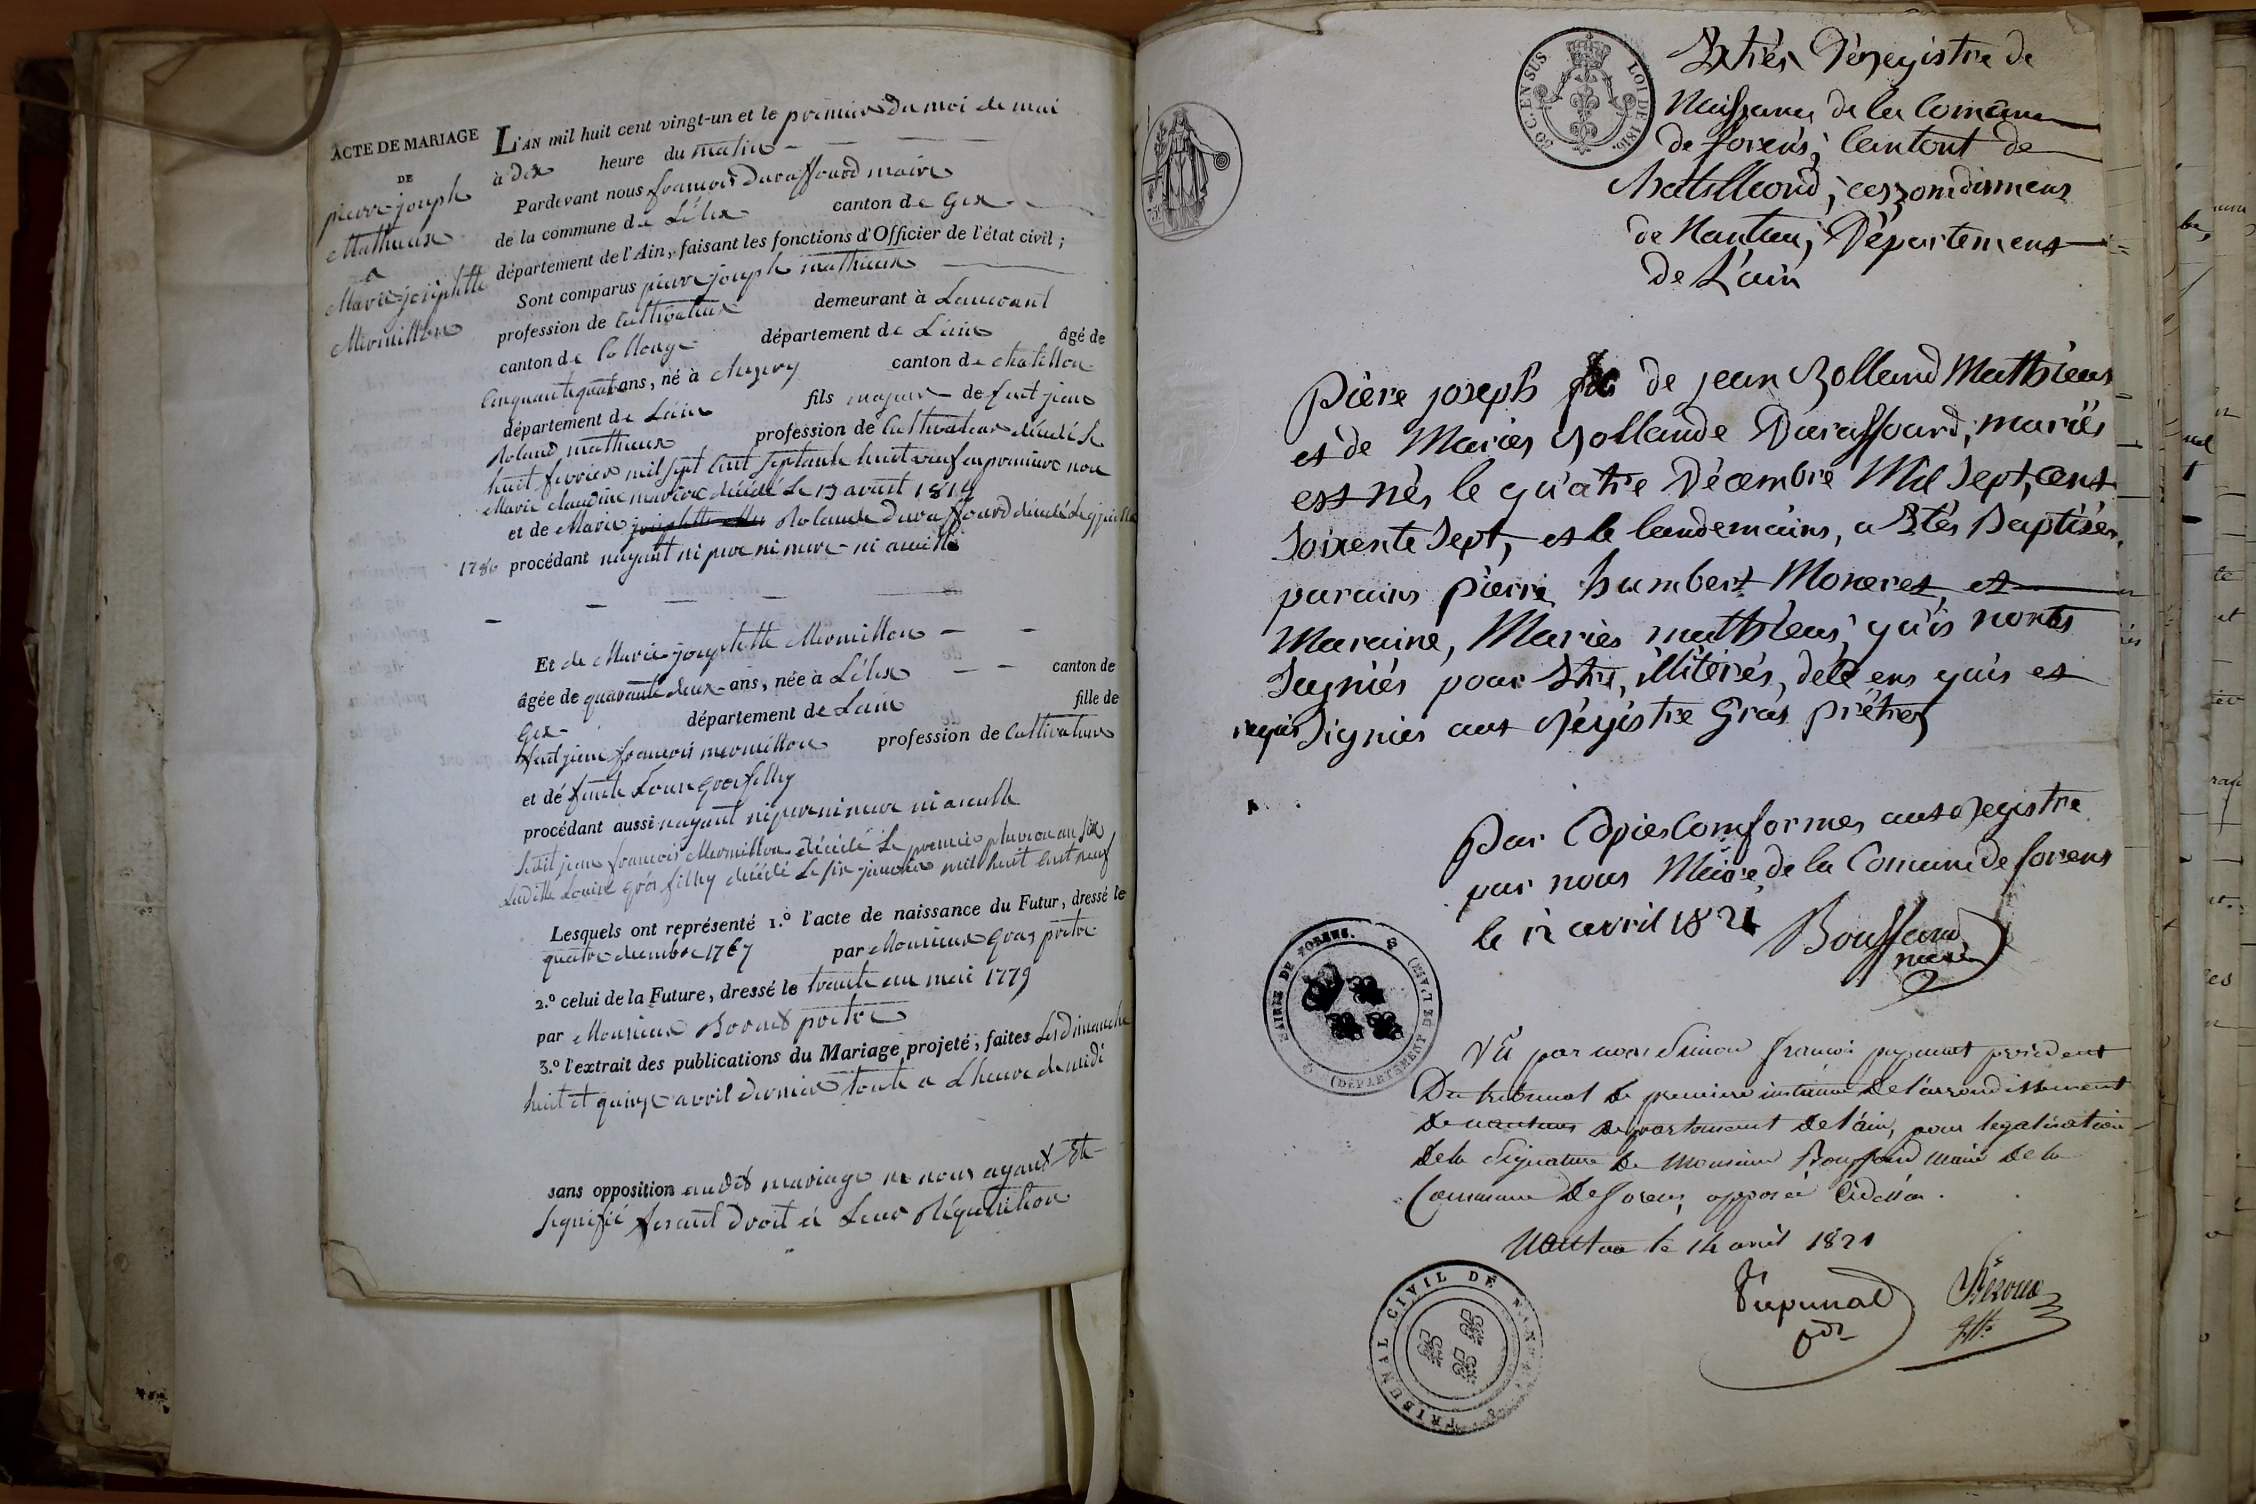 ACTE DE MARIAGE
DE
pierre joseph
Mathieux
a
Marie-josephette
Mermillon
L'AN mil huit cent vingt-un et le premier du moi de mai
à dix heure du matin
Pardevant nous françois Duraffourd maire
de la commune de Lélex canton de Gex
département de l'Ain, faisant les fonctions d'Officier de l'état civil;
Sont comparus pierre joseph mathieux
profession de Cultivateur demeurant à Lancrant
canton de Collonge département de Lain âgé de
Cinquante quatre ans, né à chezery canton de chatillon
département de Lain fils majeur de fut jean
Roland mathieux profession de Cultivateur décédé le
huit fevrier mil sept cent septante huit veuf en premiere noce
Marie claudine décédé le 13 avril 1814
et de Marie josephette Rolande Duraffourd décédé le
1786 procédant nayant ni pere ni mere ni
Et de Marie-josephette Mermillon
âgée de quarante deux ans, née à Lélex canton de
Gex département de Lain fille de
fut jean françois mermillon profession de Cultivateur
et dé funte Louise grosfilley
procédant aussi nayant ni pere ni mere ni
Ledit jean françois Mermillon décédé le premier pluviose an six
Ladite Louise grosfilley décédé le six janvier mil huit cent neuf
Lesquels ont représenté 1.º l'acte de naissance du Futur, dressé le
quatre décembre 1767 par Monsieur Gras pretre
2.º celui de la Future, dressé le trente au mai 1779
par Monsieur pretre
3.º l'extrait des publications du Mariage projeté, faites les dimanche
huit et quinze avril dernier toute a L'heure de midi
sans opposition audit mariage ne nous ayant Eté
signifié fesant droit à Leur Réquisition
50 C. EN SUS
LOI DE 1816.
Extrés Dé registre de
Naissances de la Comune
de forens; Cantont de
Chatillond; arrondismens
de Nantua; Département
de L'ain
Piére joseph fils de jean Rolland Mathieus
et de Maries Rollande Duraffourd, mariés
est nés le quâtre Décembre Mil sept, cent
soixente sept, et le landemains, a Etés Baptisés,
parains piérre humbert Moneret, et
Maraine, Maries mathieus, qu'is nonts
signiés pour Etre, illitérés, dele ens quis et
requis signies aux Régistre Gras prêtres
Par Copies Comformes aux Registre
par nous Maire de la Comune de forens
le 12 avril 1821 Bouffand
maire
MAIRIE DE FORENS.
(DÉPARTEMENT DE L'AIN)
Vû par nous Simon françois president
Du tribunal de premiere instance de l'arrondissement
de nantua departement de l'ain, pour legalisation
de la signature de Monsieur Bouffand maire de la
Commune de forens, apposée Cidessus.
Nantua le 14 avril 1821
TRIBUNAL CIVIL DE NANTUA